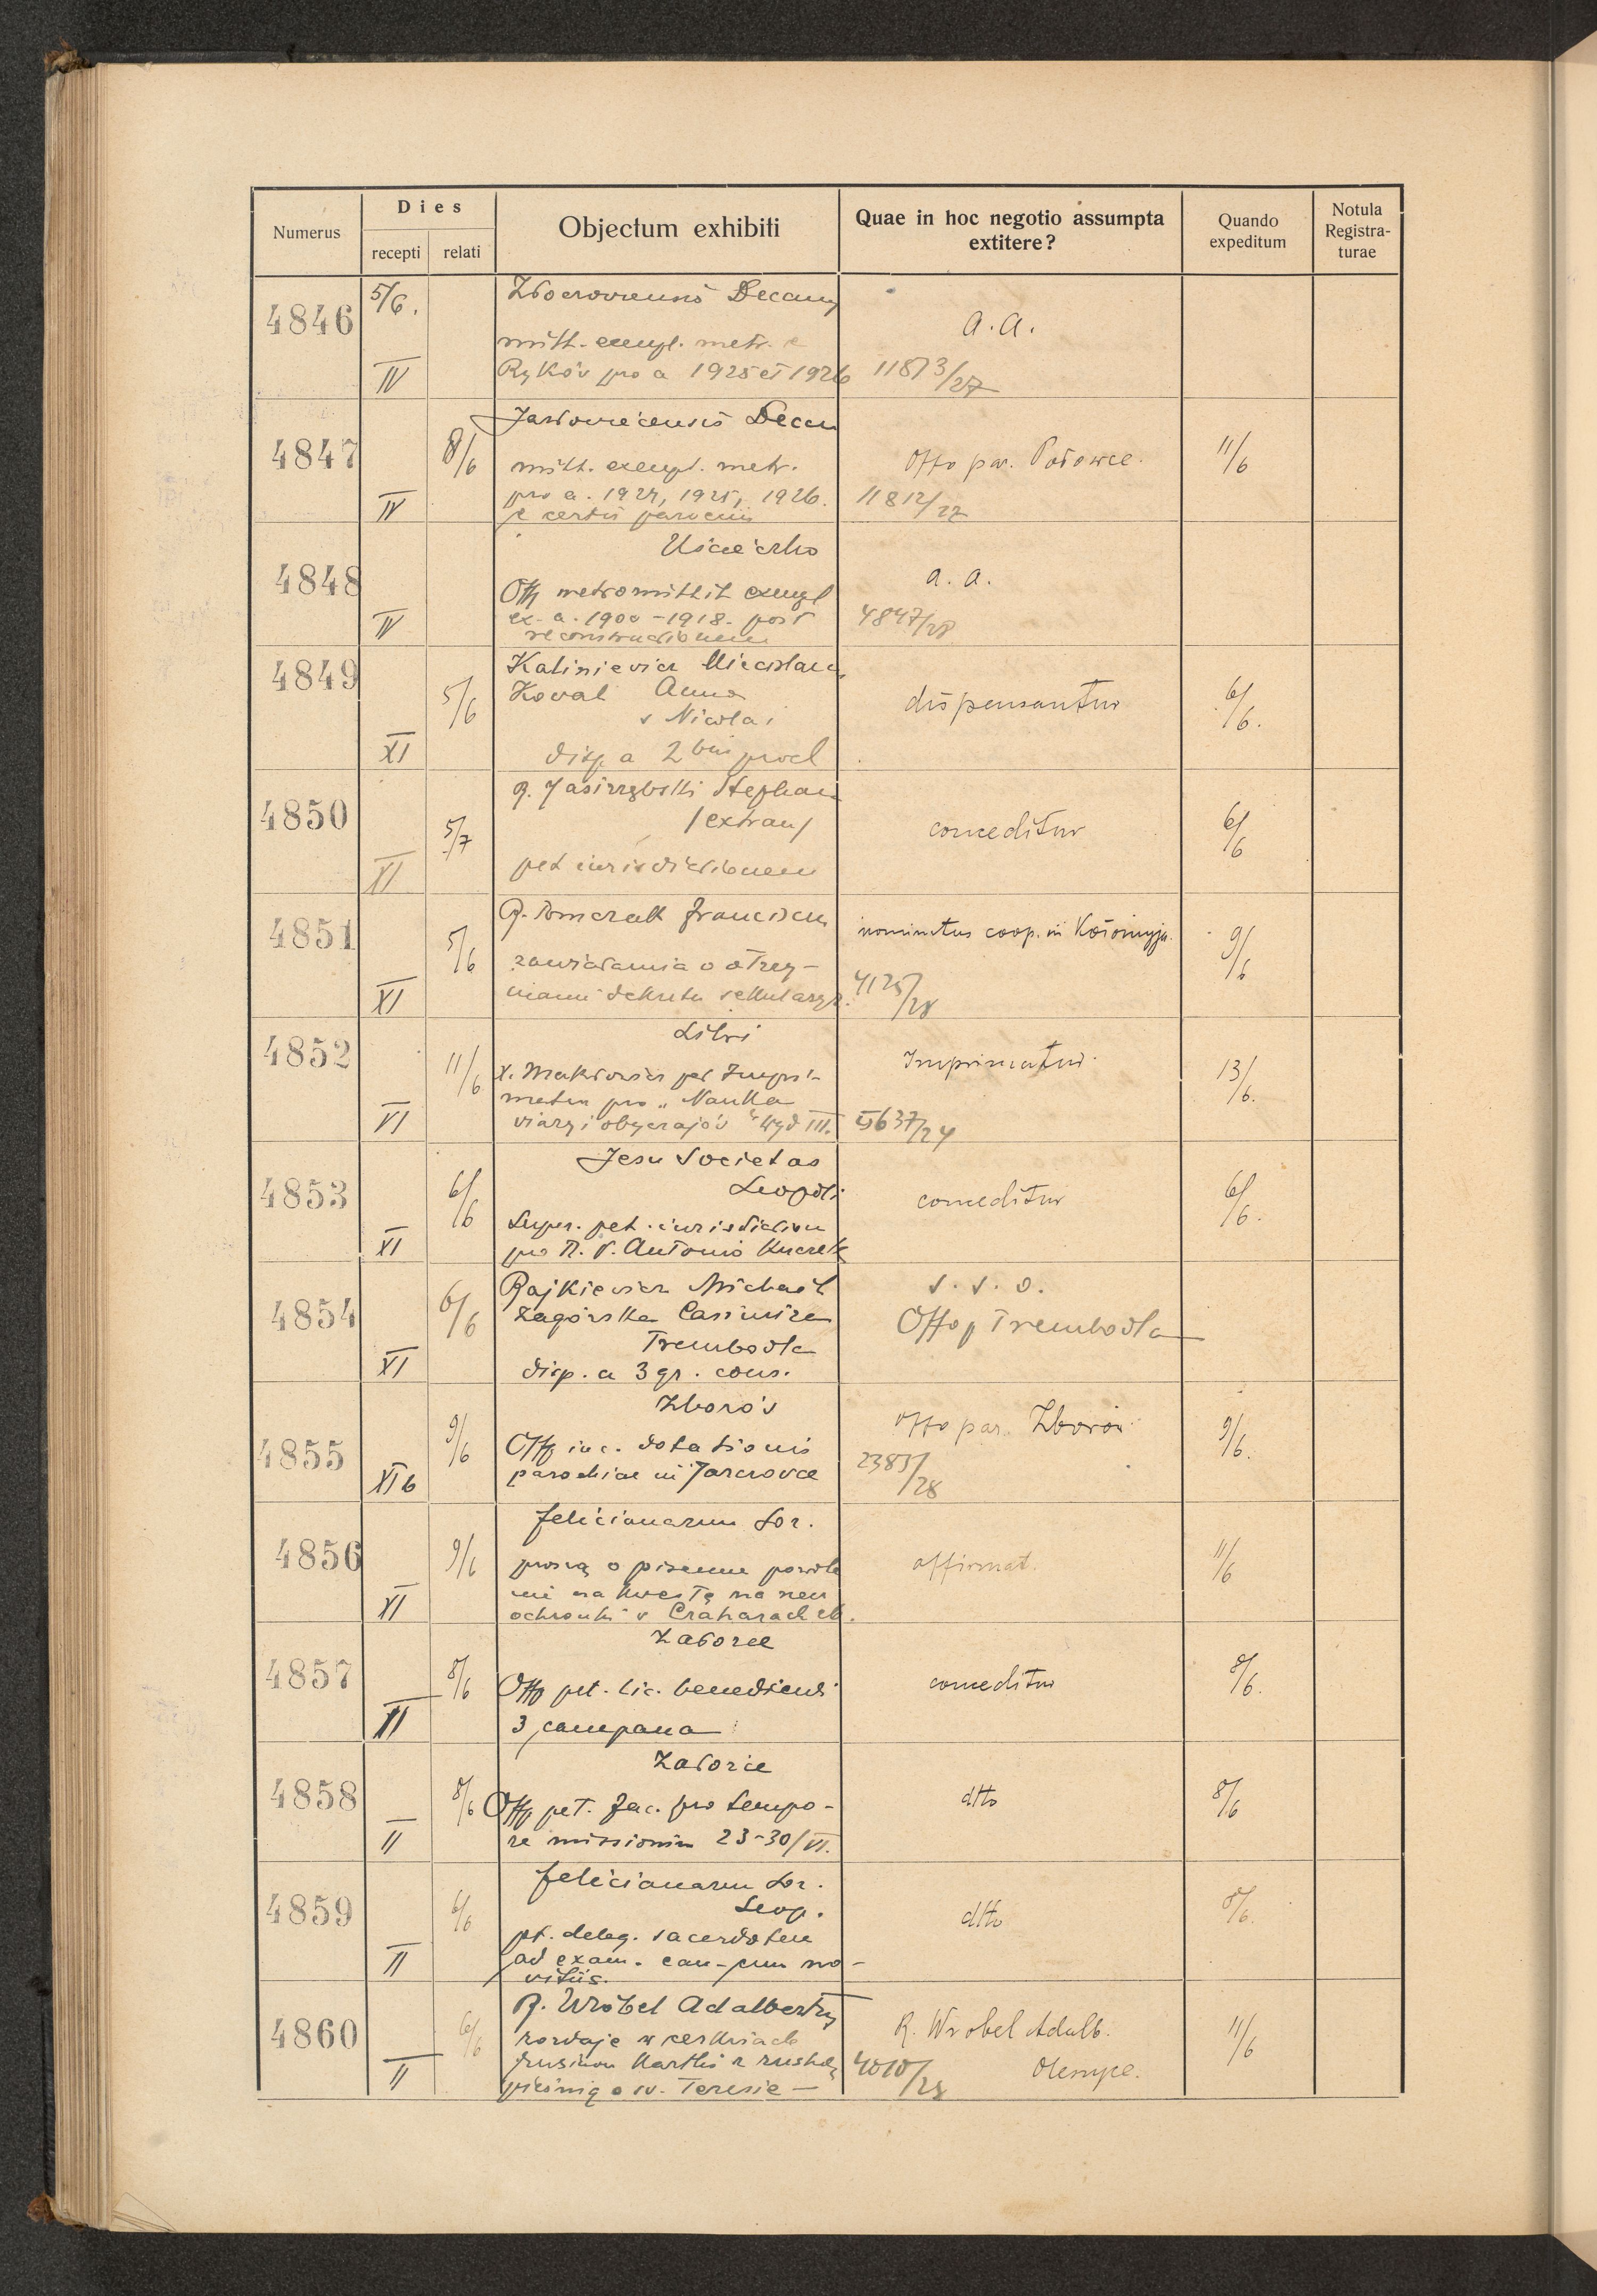 Numerus
Dies
recepti
relati
Objectum exhibiti
Quae in hoc negotio assumpta
extitere?
Quando
expeditum
Notula
Registra-
turae
4846
5/6.
IV
Decanus
mitt. exempl. metr. e
Ryków pro a 1925 et 1926
a.a.
11873/27
4847
8/6
IV
Decan
mitt. exempl. metr.
pro a. 1924, 1925, 1926.
e certis paroeciis
Offo par. Potowce.
11812/27
11/6
4848
IV
Uścieczko
Offp metr. mittit exempl
ex. a. 1900-1918. post
reconstructionem
a. a.
4847/28
4849
5/6
XI
Kaliniewicz
Kowal Anna
s Nicolai
disp a 2bus procl
dispensantur
6/6.
4850
5/7
XI
R. Jasirzębski Stephan
/extran/
pet iurisdictionem
conceditur
6/6
4851
5/6
XI
R. Franciscus
zawiadamia o otrzy-
maniu dekretu sekularyz.
nominatus coop. in Kołomyja.
4125/28
9/6
4852
11/6
VI
Libri
X. Makłowicz pet Impri-
matur pro „Nauka
wiary i obyczajów" wyd III.
Imprimatur
5637/24
13/6.
4853
6/6
XI
Jesu Societas
Leopoli
Super. pet. iurisdiction
pro R. P. Antonio
conceditur
6/6.
4854
6/6
XI
Rajkiewicz Michael
Zagórska Casimira
Trembowla
disp. a 3 gr. cons.
s. s. o.
Offo p Trembowla
4855
9/6
XI b
Zborów
Offp inc. dotationis
parochiae in Jarczowce
Offo par. Zborów
2383/28
9/6.
4856
9/6
XI
Felicianarum Sor.
proszą o pisemne pozwole
nie na kwestę na rzecz
ochronki w
affirmat.
11/6
4857
8/6
II
Załoźce
Offp pet. lic. benedicendi
3 campana
conceditur
8/6.
4858
8/6
II
Załoźce
Offp pet. fac. pro tempo-
re missionum 23-30/VI.
dtto
8/6
4859
6/6
II
Felicianarum Sor.
Leop.
pt. deleg. sacerdotem
ad exam. can- cum no-
vitiis.
dtto
8/6.
4860
6/6
II
R. Wróbel Adalbertus
rozdaje w cerkwiach
kartki z ruską
pieśnią o św. Teresie —
R. Wrobel Adalb.
4010/28
11/6